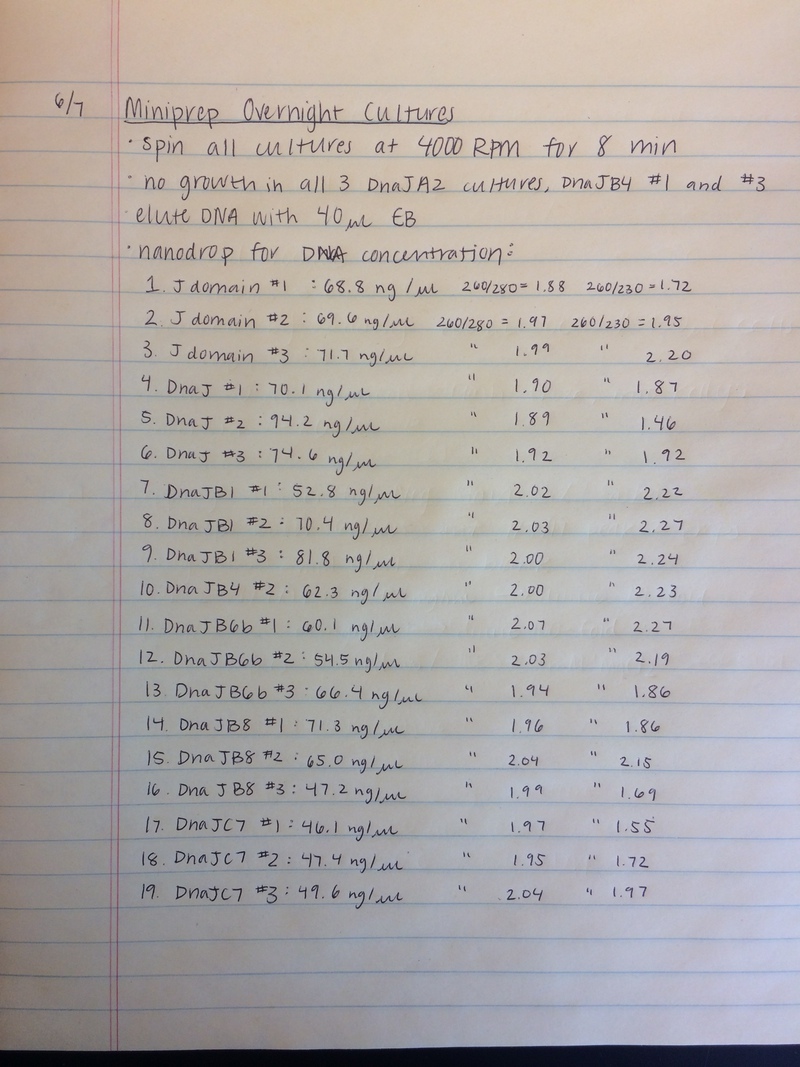 6/7 Miniprep Overnight Cultures
· spin all cultures at 4000 RPM for 8 min
· no growth in all 3 DnaJA2 cultures, DnaJB4 #1 and #3
· elute DNA with 40 µL EB
· nanodrop for DNA concentration:
1. J domain #1 : 68.8 ng/µL 260/280 = 1.88 260/230 = 1.72
2. J domain #2 : 69.6 ng/µL 260/280 = 1.97 260/230 = 1.95
3. J domain #3 : 71.7 ng/µL " 1.99 " 2.20
4. DnaJ #1 : 70.1 ng/µL " 1.90 " 1.87
5. DnaJ #2 : 94.2 ng/µL " 1.89 " 1.46
6. DnaJ #3 : 74.6 ng/µL " 1.92 " 1.92
7. DnaJB1 #1 : 52.8 ng/µL " 2.02 " 2.22
8. DnaJB1 #2 : 70.4 ng/µL " 2.03 " 2.27
9. DnaJB1 #3 : 81.8 ng/µL " 2.00 " 2.24
10. DnaJB4 #2 : 62.3 ng/µL " 2.00 " 2.23
11. DnaJB6b #1 : 60.1 ng/µL " 2.07 " 2.27
12. DnaJB6b #2 : 54.5 ng/µL " 2.03 " 2.19
13. DnaJB6b #3 : 66.4 ng/µL " 1.94 " 1.86
14. DnaJB8 #1 : 71.3 ng/µL " 1.96 " 1.86
15. DnaJB8 #2 : 65.0 ng/µL " 2.04 " 2.15
16. DnaJB8 #3 : 47.2 ng/µL " 1.99 " 1.69
17. DnaJC7 #1 : 46.1 ng/µL " 1.97 " 1.55
18. DnaJC7 #2 : 47.4 ng/µL " 1.95 " 1.72
19. DnaJC7 #3 : 49.6 ng/µL " 2.04 " 1.97